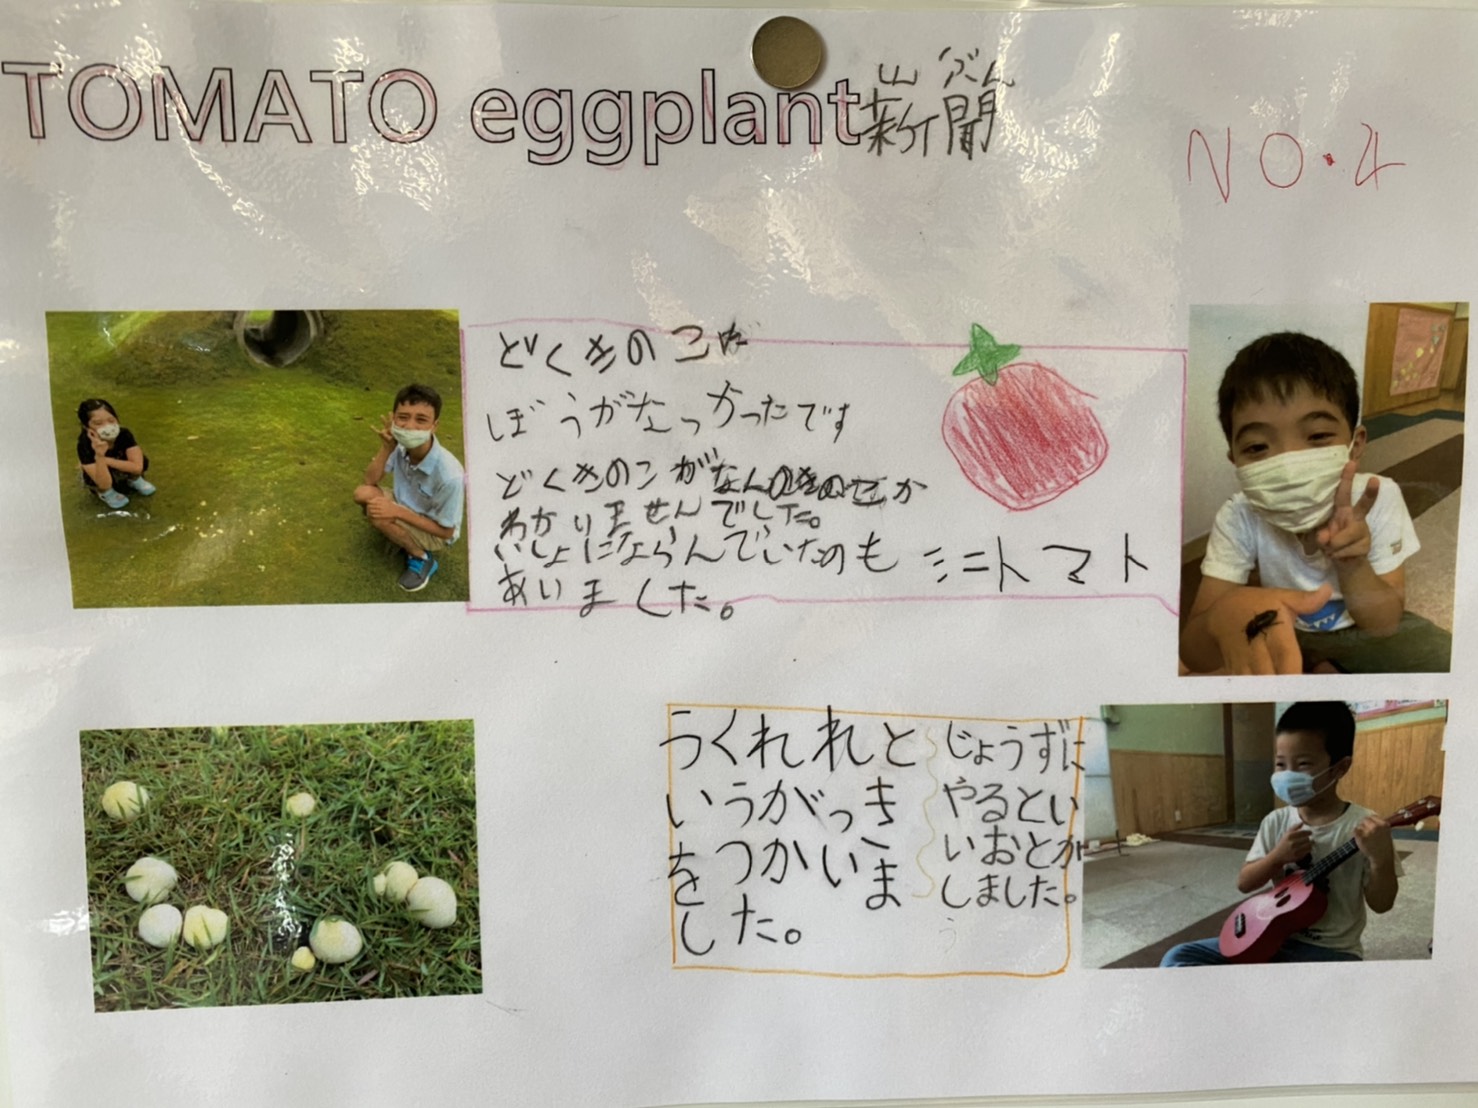 ぶん
TOMATO eggplant新聞
NO.4
どくきのこが
ぼうがなっかったです
どくきのこがなんのきのこか
わかりませんでした。
いしょにならんでいたのも
あいました。
ミニトマト
うくれれと
いうがっき
をつかいま
した。
じょうずに
やるとい
いおとが
しました。